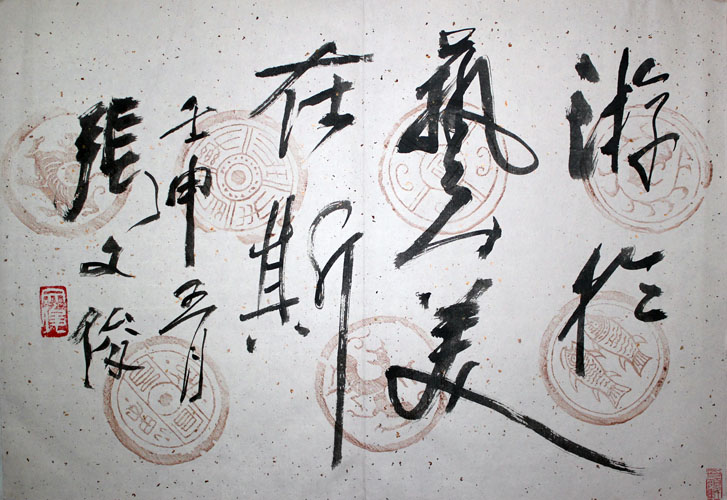 游於
藝美
在斯
壬申五月
張文俊